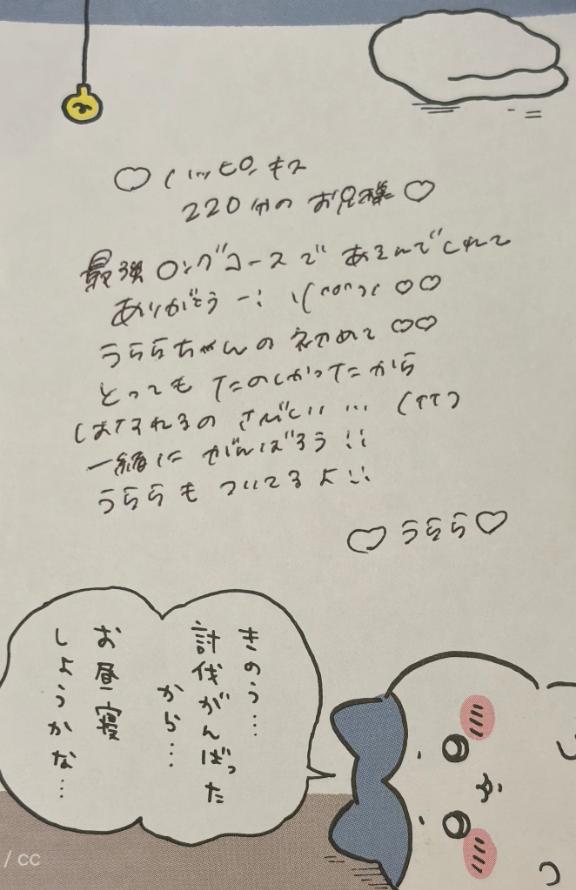 ♡ ハッピーキス
220分のお兄様♡
最強ロングコースであそんでくれて
ありがとう ー! \(^o^)/ ♡♡
うららちゃんの初めて♡♡
とってもたのしかったから
はなれるのさびしい … (TT)
一緒にがんばろう!!
うららもついてるよ!!
♡うらら♡
きのう…
討伐がんばった
から…
お昼寝
しようかな…
/ cc